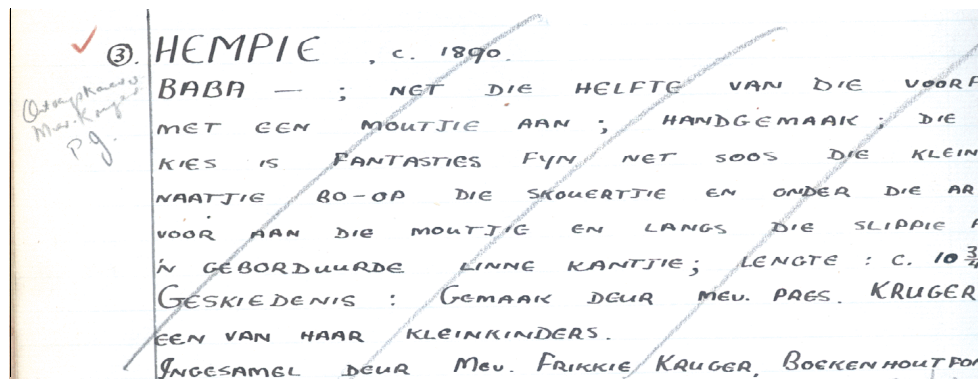 ③. HEMPIE, c. 1890.
BABA — ; NET DIE HELFTE VAN DIE VOORP
MET EEN MOUTJIE AAN ; HANDGEMAAK ; DIE
KIES IS FANTASTIES FYN NET SOOS DIE KLEIN
NAATJIE BO-OP DIE SKOUERTJIE EN ONDER DIE AR
VOOR AAN DIE MOUTJIE EN LANGS DIE SLIPPIE
'N GEBORDUURDE LINNE KANTJIE ; LENGTE : C. 10 3/4
GESKIEDENIS : GEMAAK DEUR MEV. PRES. KRUGER
EEN VAN HAAR KLEINKINDERS.
INGESAMEL DEUR MEV. FRIKKIE KRUGER, BOEKENHOUTFON
Mev. Kruger
P.J.